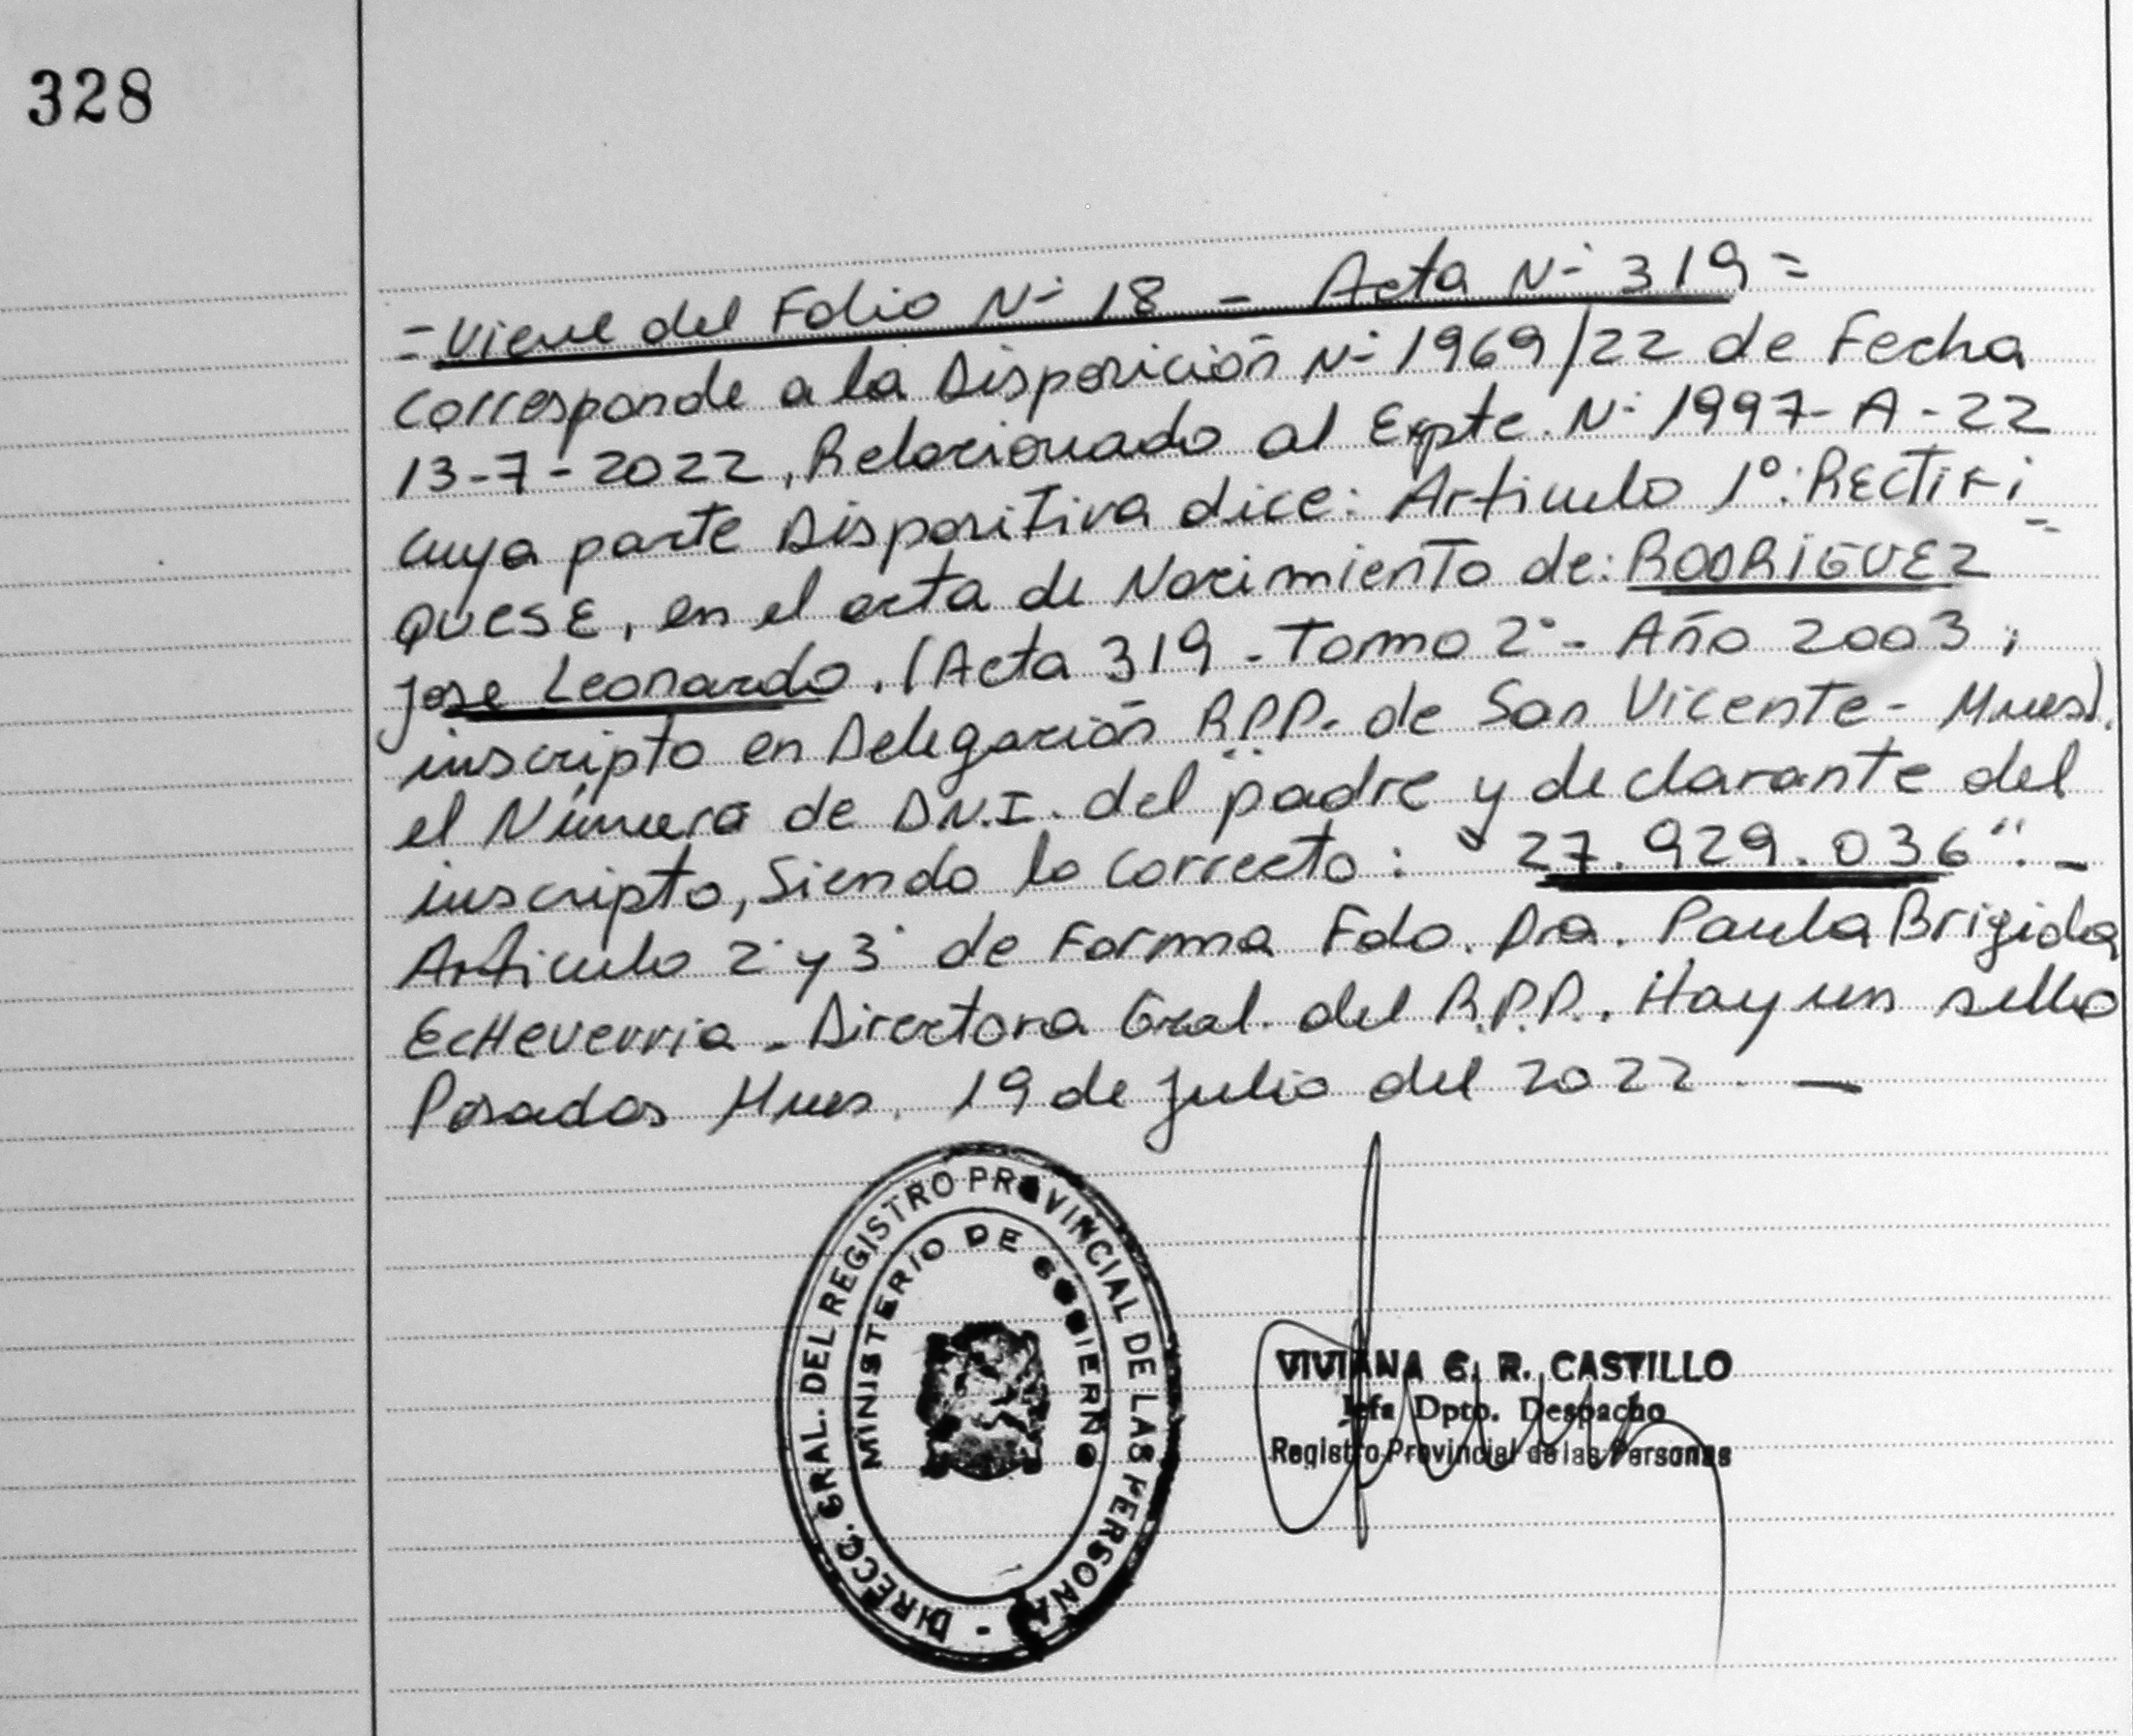 328
= Viene del Folio Nº 18 - Acta Nº 319 =
Corresponde a la Disposición Nº 1969/22 de Fecha
13-7-2022, Relacionado al Expte. Nº 1997-A-22
cuya parte Dispositiva dice: Articulo 1º: RECTIFI
QUESE, en el acta de Nacimiento de: RODRIGUEZ
Jose Leonardo. (Acta 319 - Tomo 2º - Año 2003,
inscripto en Delegación R.P.P. de San Vicente - Mnes).
el Número de D.N.I. del padre y declarante del
inscripto, Siendo lo correcto: "27.929.036". -
Articulo 2º y 3º de Forma Fdo. Dra. Paula Brigida
Echeverria - Directora Gral. del R.P.P. Hay un sello
Posadas Mnes. 19 de Julio del 2022. —
DIRECC. GRAL. DEL REGISTRO PROVINCIAL DE LAS PERSONAS -
MINISTERIO DE GOBIERNO
VIVIANA G. R. CASTILLO
Jefa Dpto. Despacho
Registro Provincial de las Personas